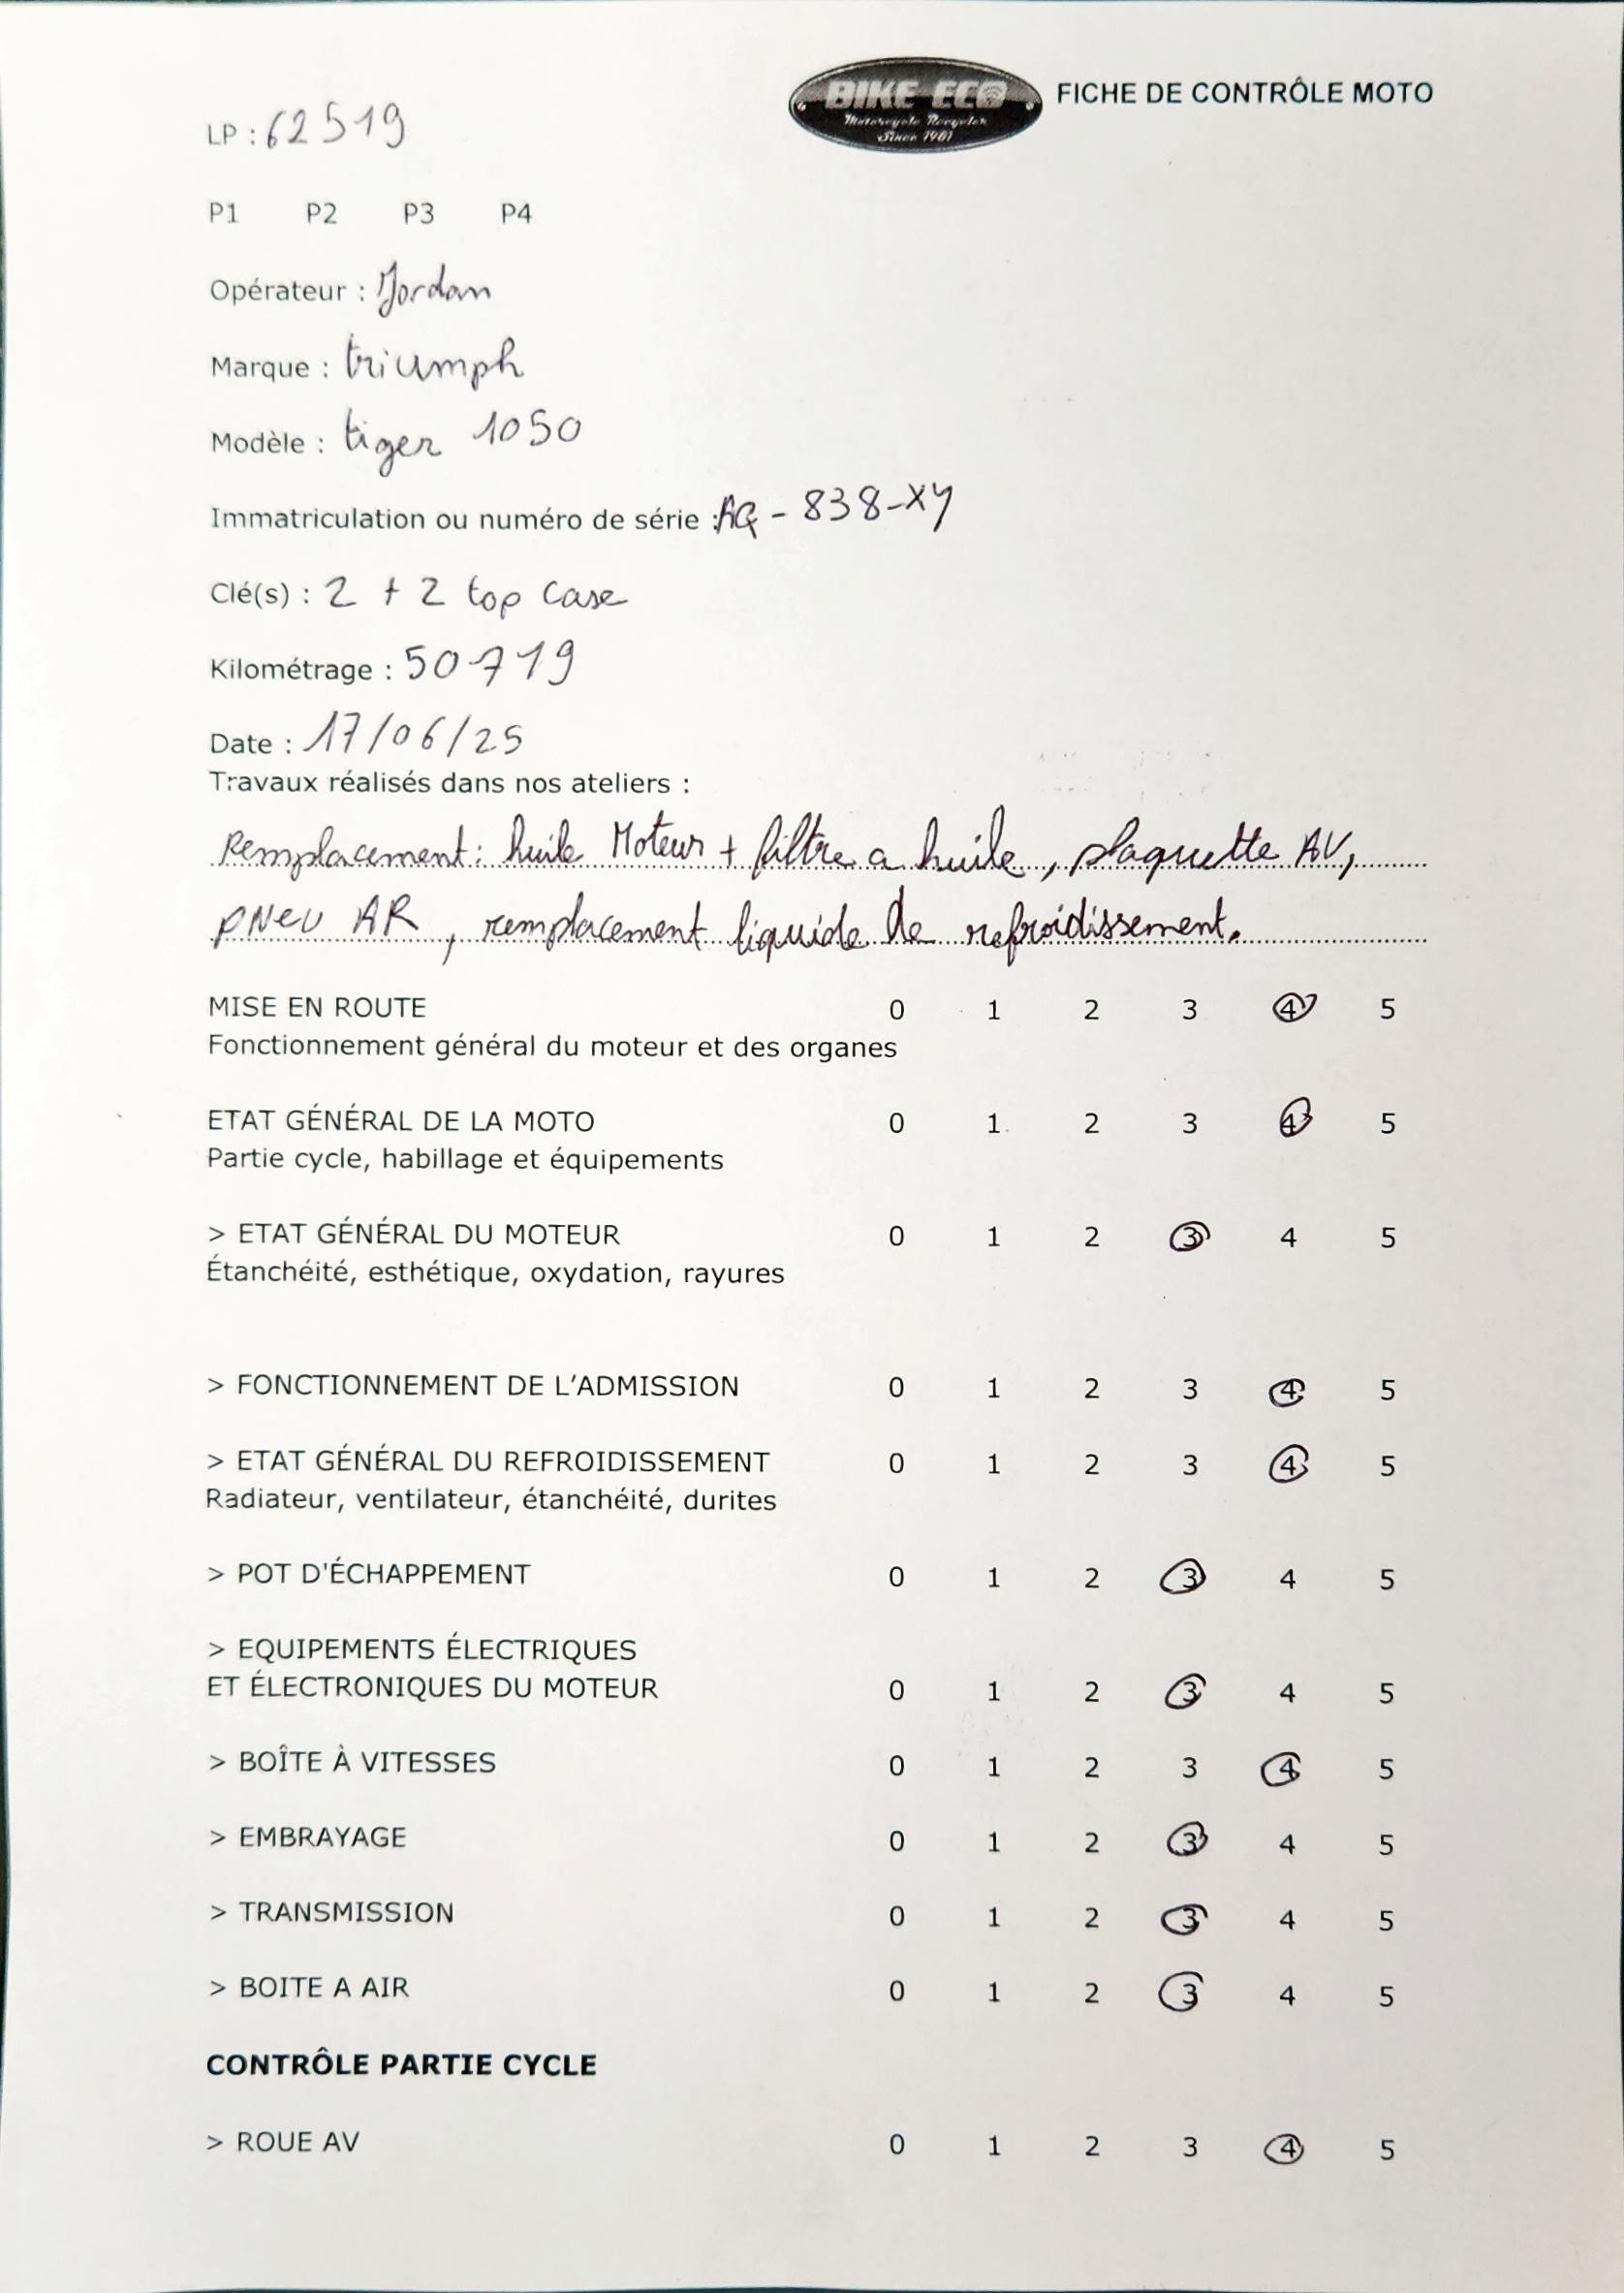 BIKE ECO
Motorcycle Recycler
Since 1981
FICHE DE CONTRÔLE MOTO
LP : 62519
P1 P2 P3 P4
Opérateur : Jordan
Marque : triumph
Modèle : tiger 1050
Immatriculation ou numéro de série : AQ - 838-XY
Clé(s) : 2 + 2 top case
Kilométrage : 50719
Date : 17/06/25
Travaux réalisés dans nos ateliers :
Remplacement : huile Moteur + filtre a huile, plaquette AV,
pNeu AR, remplacement liquide de refroidissement.
MISE EN ROUTE 0 1 2 3 4 5
Fonctionnement général du moteur et des organes
ETAT GÉNÉRAL DE LA MOTO 0 1 2 3 4 5
Partie cycle, habillage et équipements
> ETAT GÉNÉRAL DU MOTEUR 0 1 2 3 4 5
Étanchéité, esthétique, oxydation, rayures
> FONCTIONNEMENT DE L'ADMISSION 0 1 2 3 4 5
> ETAT GÉNÉRAL DU REFROIDISSEMENT 0 1 2 3 4 5
Radiateur, ventilateur, étanchéité, durites
> POT D'ÉCHAPPEMENT 0 1 2 3 4 5
> EQUIPEMENTS ÉLECTRIQUES
ET ÉLECTRONIQUES DU MOTEUR 0 1 2 3 4 5
> BOÎTE À VITESSES 0 1 2 3 4 5
> EMBRAYAGE 0 1 2 3 4 5
> TRANSMISSION 0 1 2 3 4 5
> BOITE A AIR 0 1 2 3 4 5
CONTRÔLE PARTIE CYCLE
> ROUE AV 0 1 2 3 4 5